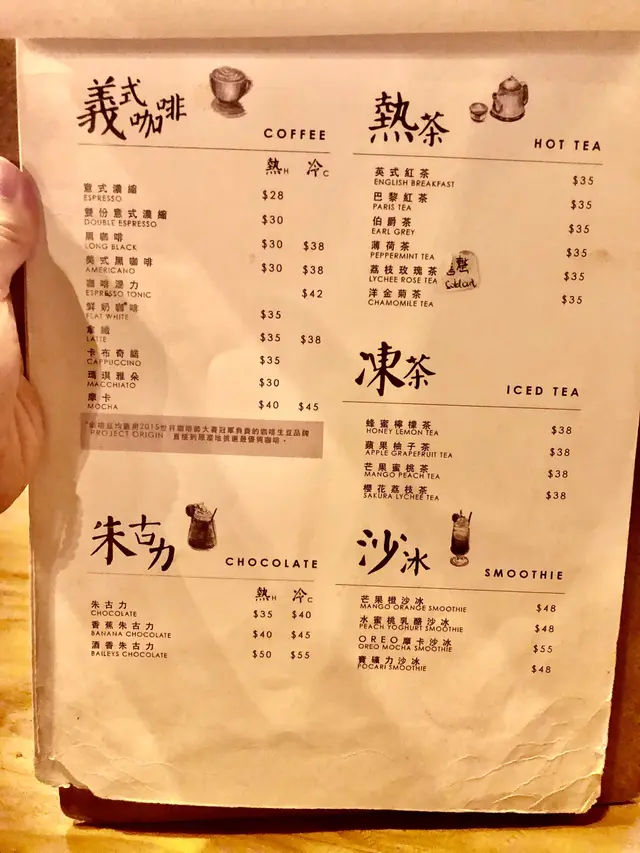 義式咖啡
COFFEE
熱H 冷C
意式濃縮 $28
ESPRESSO
雙份意式濃縮 $30
DOUBLE ESPRESSO
黑咖啡 $30 $38
LONG BLACK
美式黑咖啡 $30 $38
AMERICANO
咖啡湯力 $42
ESPRESSO TONIC
鮮奶咖啡 $35
FLAT WHITE
拿鐵 $35 $38
LATTE
卡布奇諾 $35
CAPPUCCINO
瑪琪雅朵 $30
MACCHIATO
摩卡 $40 $45
MOCHA
2015世界咖啡師大賽冠軍負責的咖啡生豆品牌
PROJECT ORIGIN
朱古力
CHOCOLATE
熱H 冷C
朱古力 $35 $40
CHOCOLATE
香蕉朱古力 $40 $45
BANANA CHOCOLATE
酒香朱古力 $50 $55
BAILEYS CHOCOLATE
熱茶
HOT TEA
英式紅茶 $35
ENGLISH BREAKFAST
巴黎紅茶 $35
PARIS TEA
伯爵茶 $35
EARL GREY
薄荷茶 $35
PEPPERMINT TEA
荔枝玫瑰茶 $35
LYCHEE ROSE TEA
洋金菊茶 $35
CHAMOMILE TEA
凍茶
ICED TEA
蜂蜜檸檬茶 $38
HONEY LEMON TEA
蘋果柚子茶 $38
APPLE GRAPEFRUIT TEA
芒果蜜桃茶 $38
MANGO PEACH TEA
櫻花荔枝茶 $38
SAKURA LYCHEE TEA
沙冰
SMOOTHIE
芒果橙沙冰 $48
MANGO ORANGE SMOOTHIE
水蜜桃乳酪沙冰 $48
PEACH YOGHURT SMOOTHIE
OREO摩卡沙冰 $55
OREO MOCHA SMOOTHIE
寶礦力沙冰 $48
POCARI SMOOTHIE